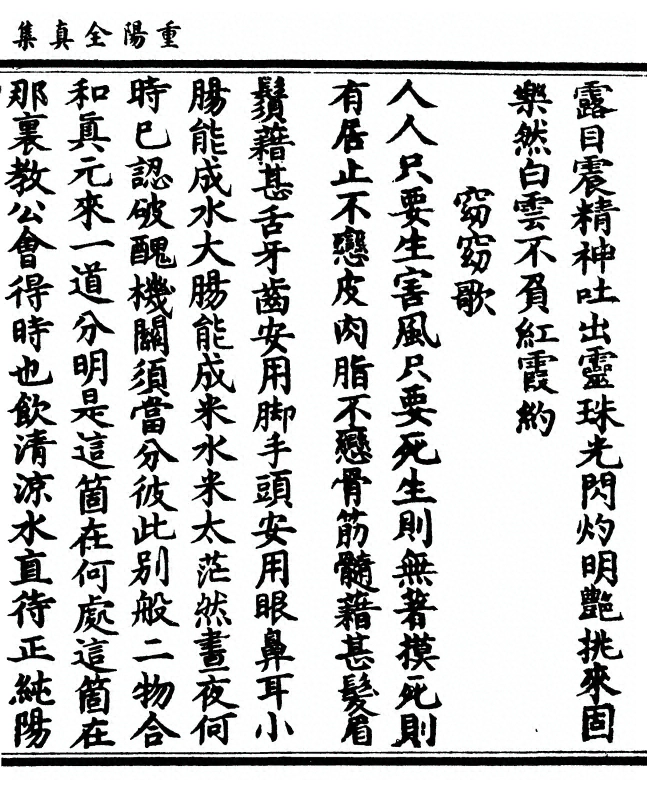 重陽全真集
露目震精神吐出靈珠光閃灼明艷挑來固
樂然白雲不負紅霞約
窈窈歌
人人只要生害風只要死生則無著摸死則
有居止不戀皮肉脂不戀骨筋髓藉甚髮眉
鬚藉甚舌牙齒安用脚手頭安用眼鼻耳小
腸能成水大腸能成米水米太茫然晝夜何
時已認破醜機關須當分彼此别般二物合
和眞元來一道分明是這箇在何處這箇在
那裏教公會得時也飲清涼水直待正純陽